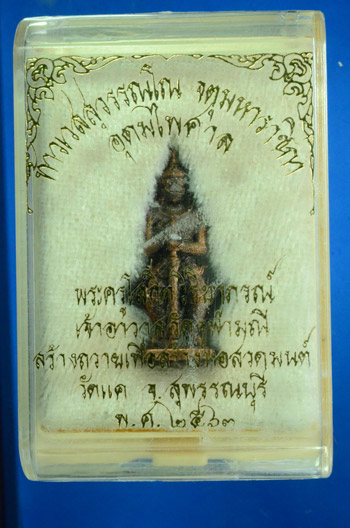 ท้าวเวสสุวรรณโณ จตุมหาราชิกา
อุดมไพศาล
พระครู
เจ้าอาวาสวัด
สร้างถวายเพื่อ สวดมนต์
วัดแค จ. สุพรรณบุรี
พ.ศ. ๒๕๖๓